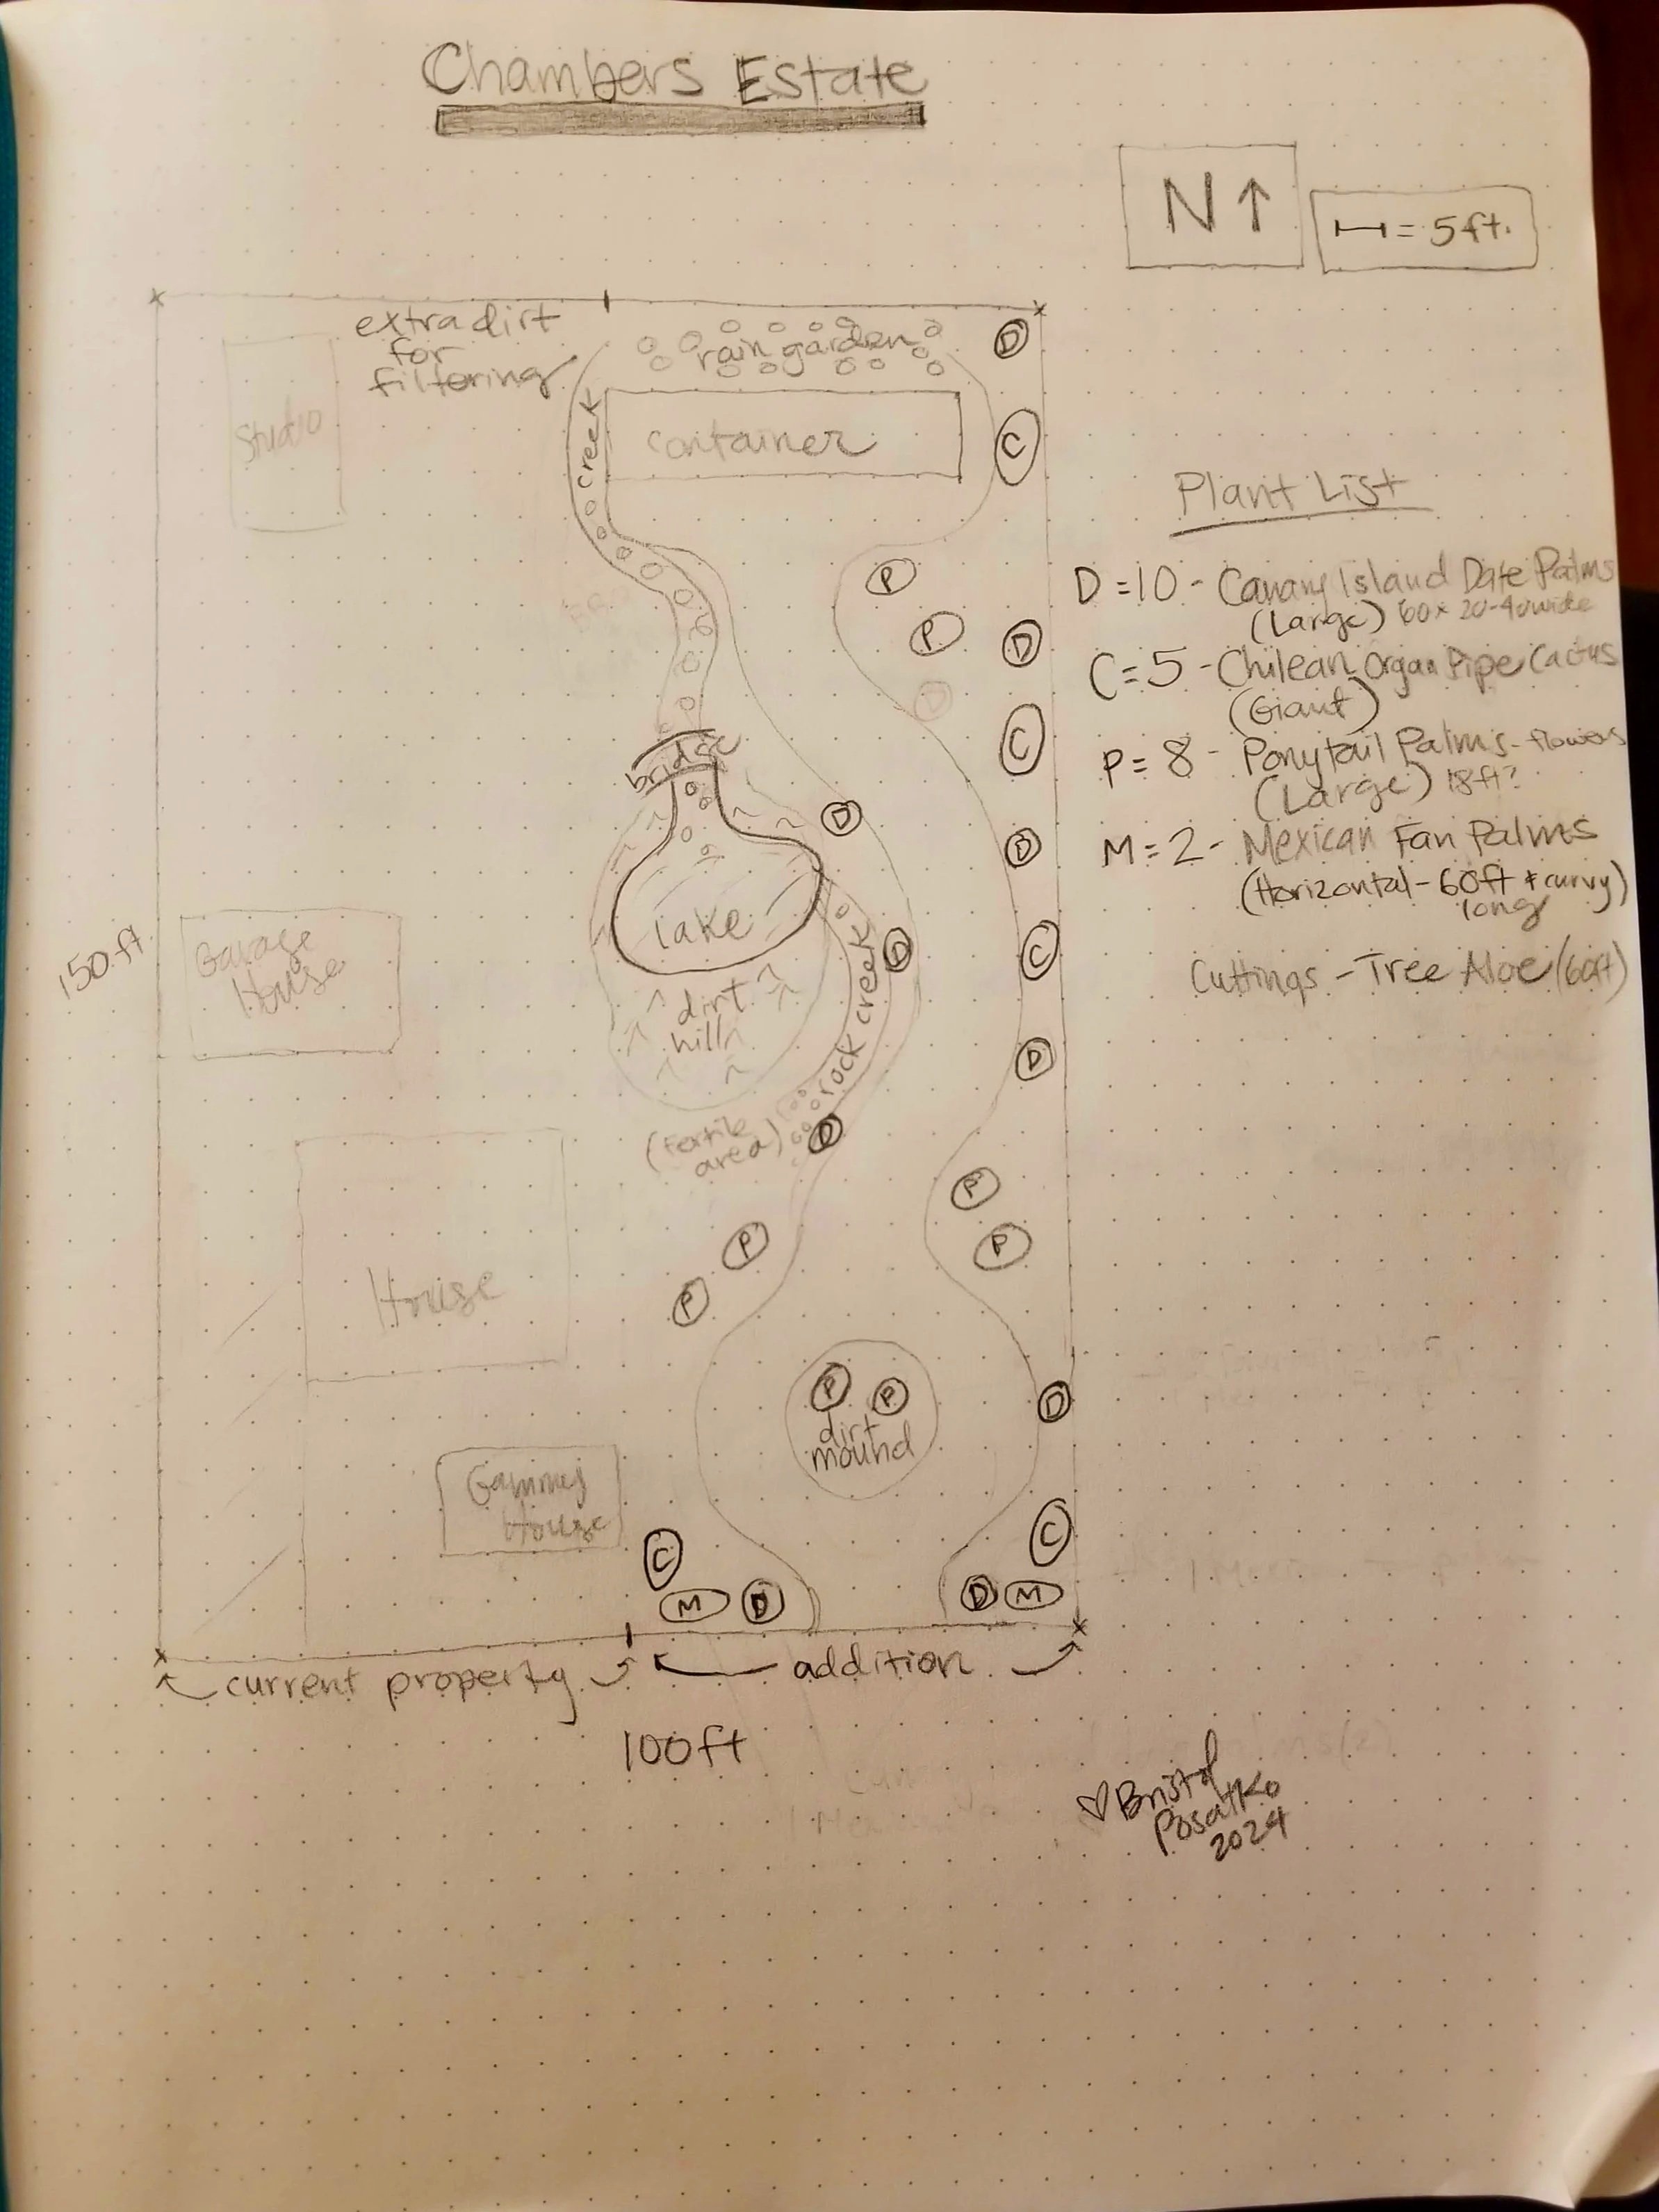 Chambers Estate
N ↑
= 5ft.
extra dirt
for
filtering
rain garden
D
Studio
creek
container
C
Plant List
P
D = 10 - Canary Island Date Palms
(Large) 60x 20-40 wide
P
D
D
C = 5 - Chilean Organ Pipe Cactus
(Giant)
C
bridge
P = 8 - Ponytail Palms - flowers
(Large) 18ft?
D
D
M = 2 - Mexican Fan Palms
(Horizontal - 60ft + curvy)
long
lake
150 ft.
Garage
House
D
C
Cuttings - Tree Aloe (60ft)
dirt
hill
rock creek
D
(Fertile
area)
D
P
P
P
P
House
P
P
dirt
mound
D
Gaming
House
C
C
M
D
D
M
current property
addition
100ft
♡ Bristol
Posatko
2024